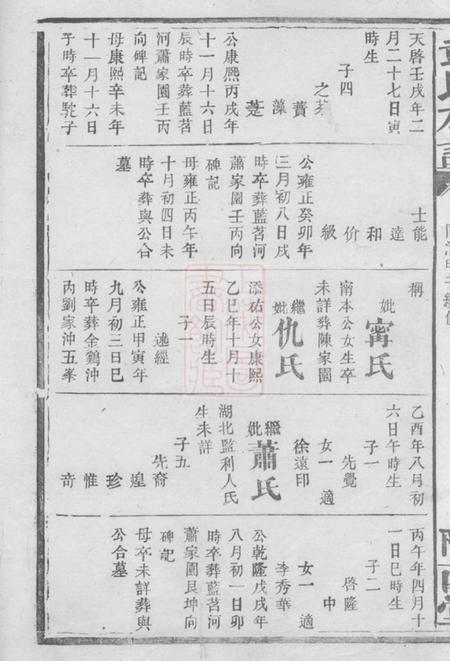 天啓壬戌年二
月二十七日寅
時生
子四
之
賫
藻
公康熙丙戌年
十一月十六日
辰時卒葬藍茗
河蕭家園壬丙
向碑記
母康熙辛未年
十一月十六日
子時卒葬駝子
士能
達
和
价
級
公雍正癸卯年
三月初八日戌
時卒葬藍茗河
蕭家園壬丙向
碑記
母雍正丙午年
十月初四日未
時卒葬與公合
墓
稱
妣甯氏
南本公女生卒
未詳葬陳家園
繼妣仇氏
添祐公女康熙
乙巳年十月十
五日辰時生
子一
述經
公雍正甲寅年
九月初三日巳
時卒葬金鷄沖
內劉家沖五峯
乙酉年八月初
六日午時生
子一
先覺
女一適
徐遠印
繼妣蕭氏
湖北監利人氏
生未詳
子五
先裔
煌
珍
惟
奇
丙午年四月十
一日巳時生
子二
啓隆
中
女一適
李秀華
公乾隆戊戌年
八月初一日卯
時卒葬藍茗河
蕭家園艮坤向
碑記
母卒未詳葬與
公合墓